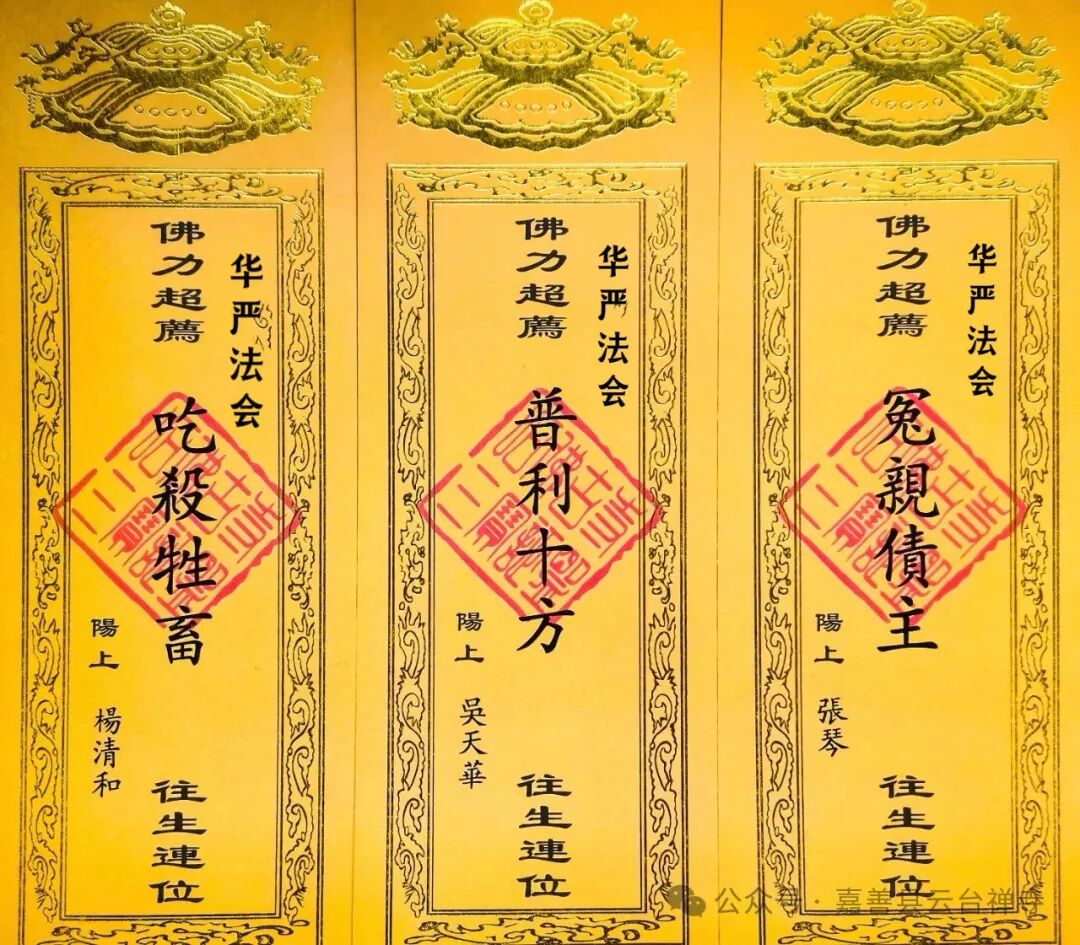 华严法会
佛力超薦
冤親債主
往生連位
陽上 張琴
华严法会
佛力超薦
普利十方
往生連位
陽上 吳天華
华严法会
佛力超薦
吃殺牲畜
往生連位
陽上 楊清和
公众号 · 嘉善县云台禅寺